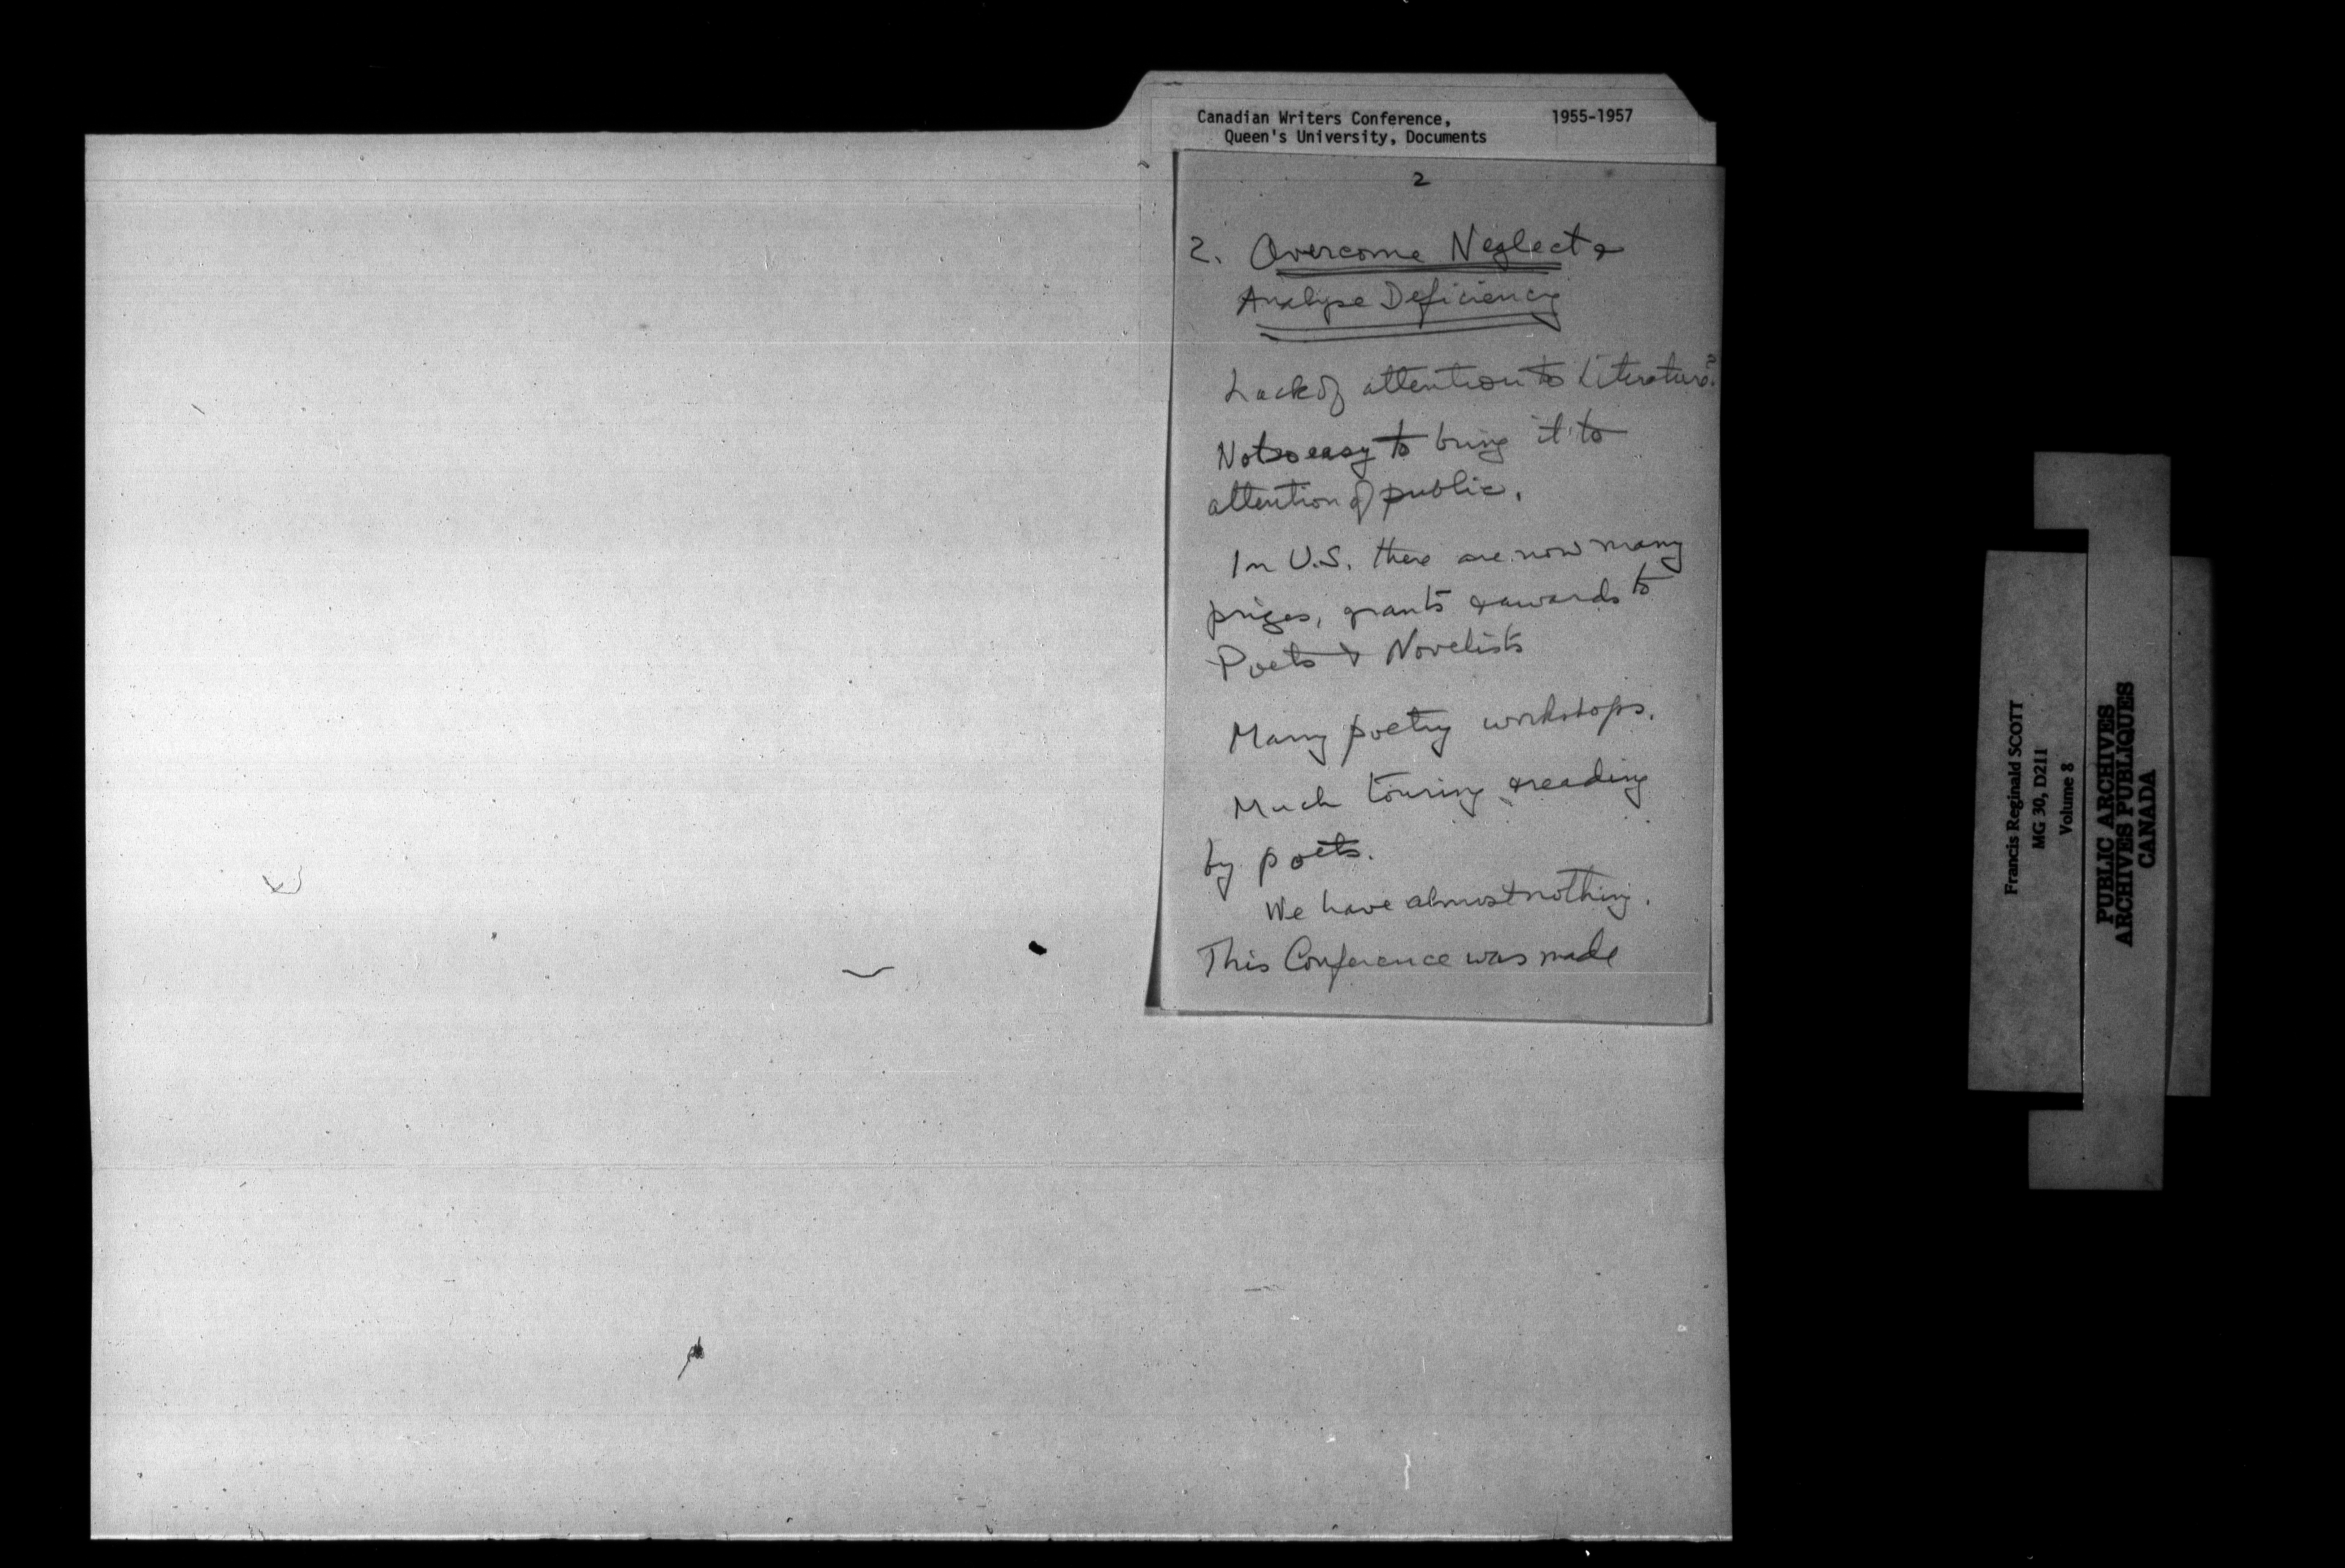 Canadian Writers Conference, 1955-1957
Queen's University, Documents
2
2. Overcome Neglect &
Analyse Deficiency
Lack of attention to Literature?
Not so easy to bring it to
attention of public.
In U.S. there are now many
prizes, grants & awards to
Poets & Novelists
Many poetry workshops.
Much touring & reading
by poets.
We have almost nothing.
This Conference was made
Francis Reginald SCOTT
MG 30, D211
Volume 8
PUBLIC ARCHIVES
ARCHIVES PUBLIQUES
CANADA